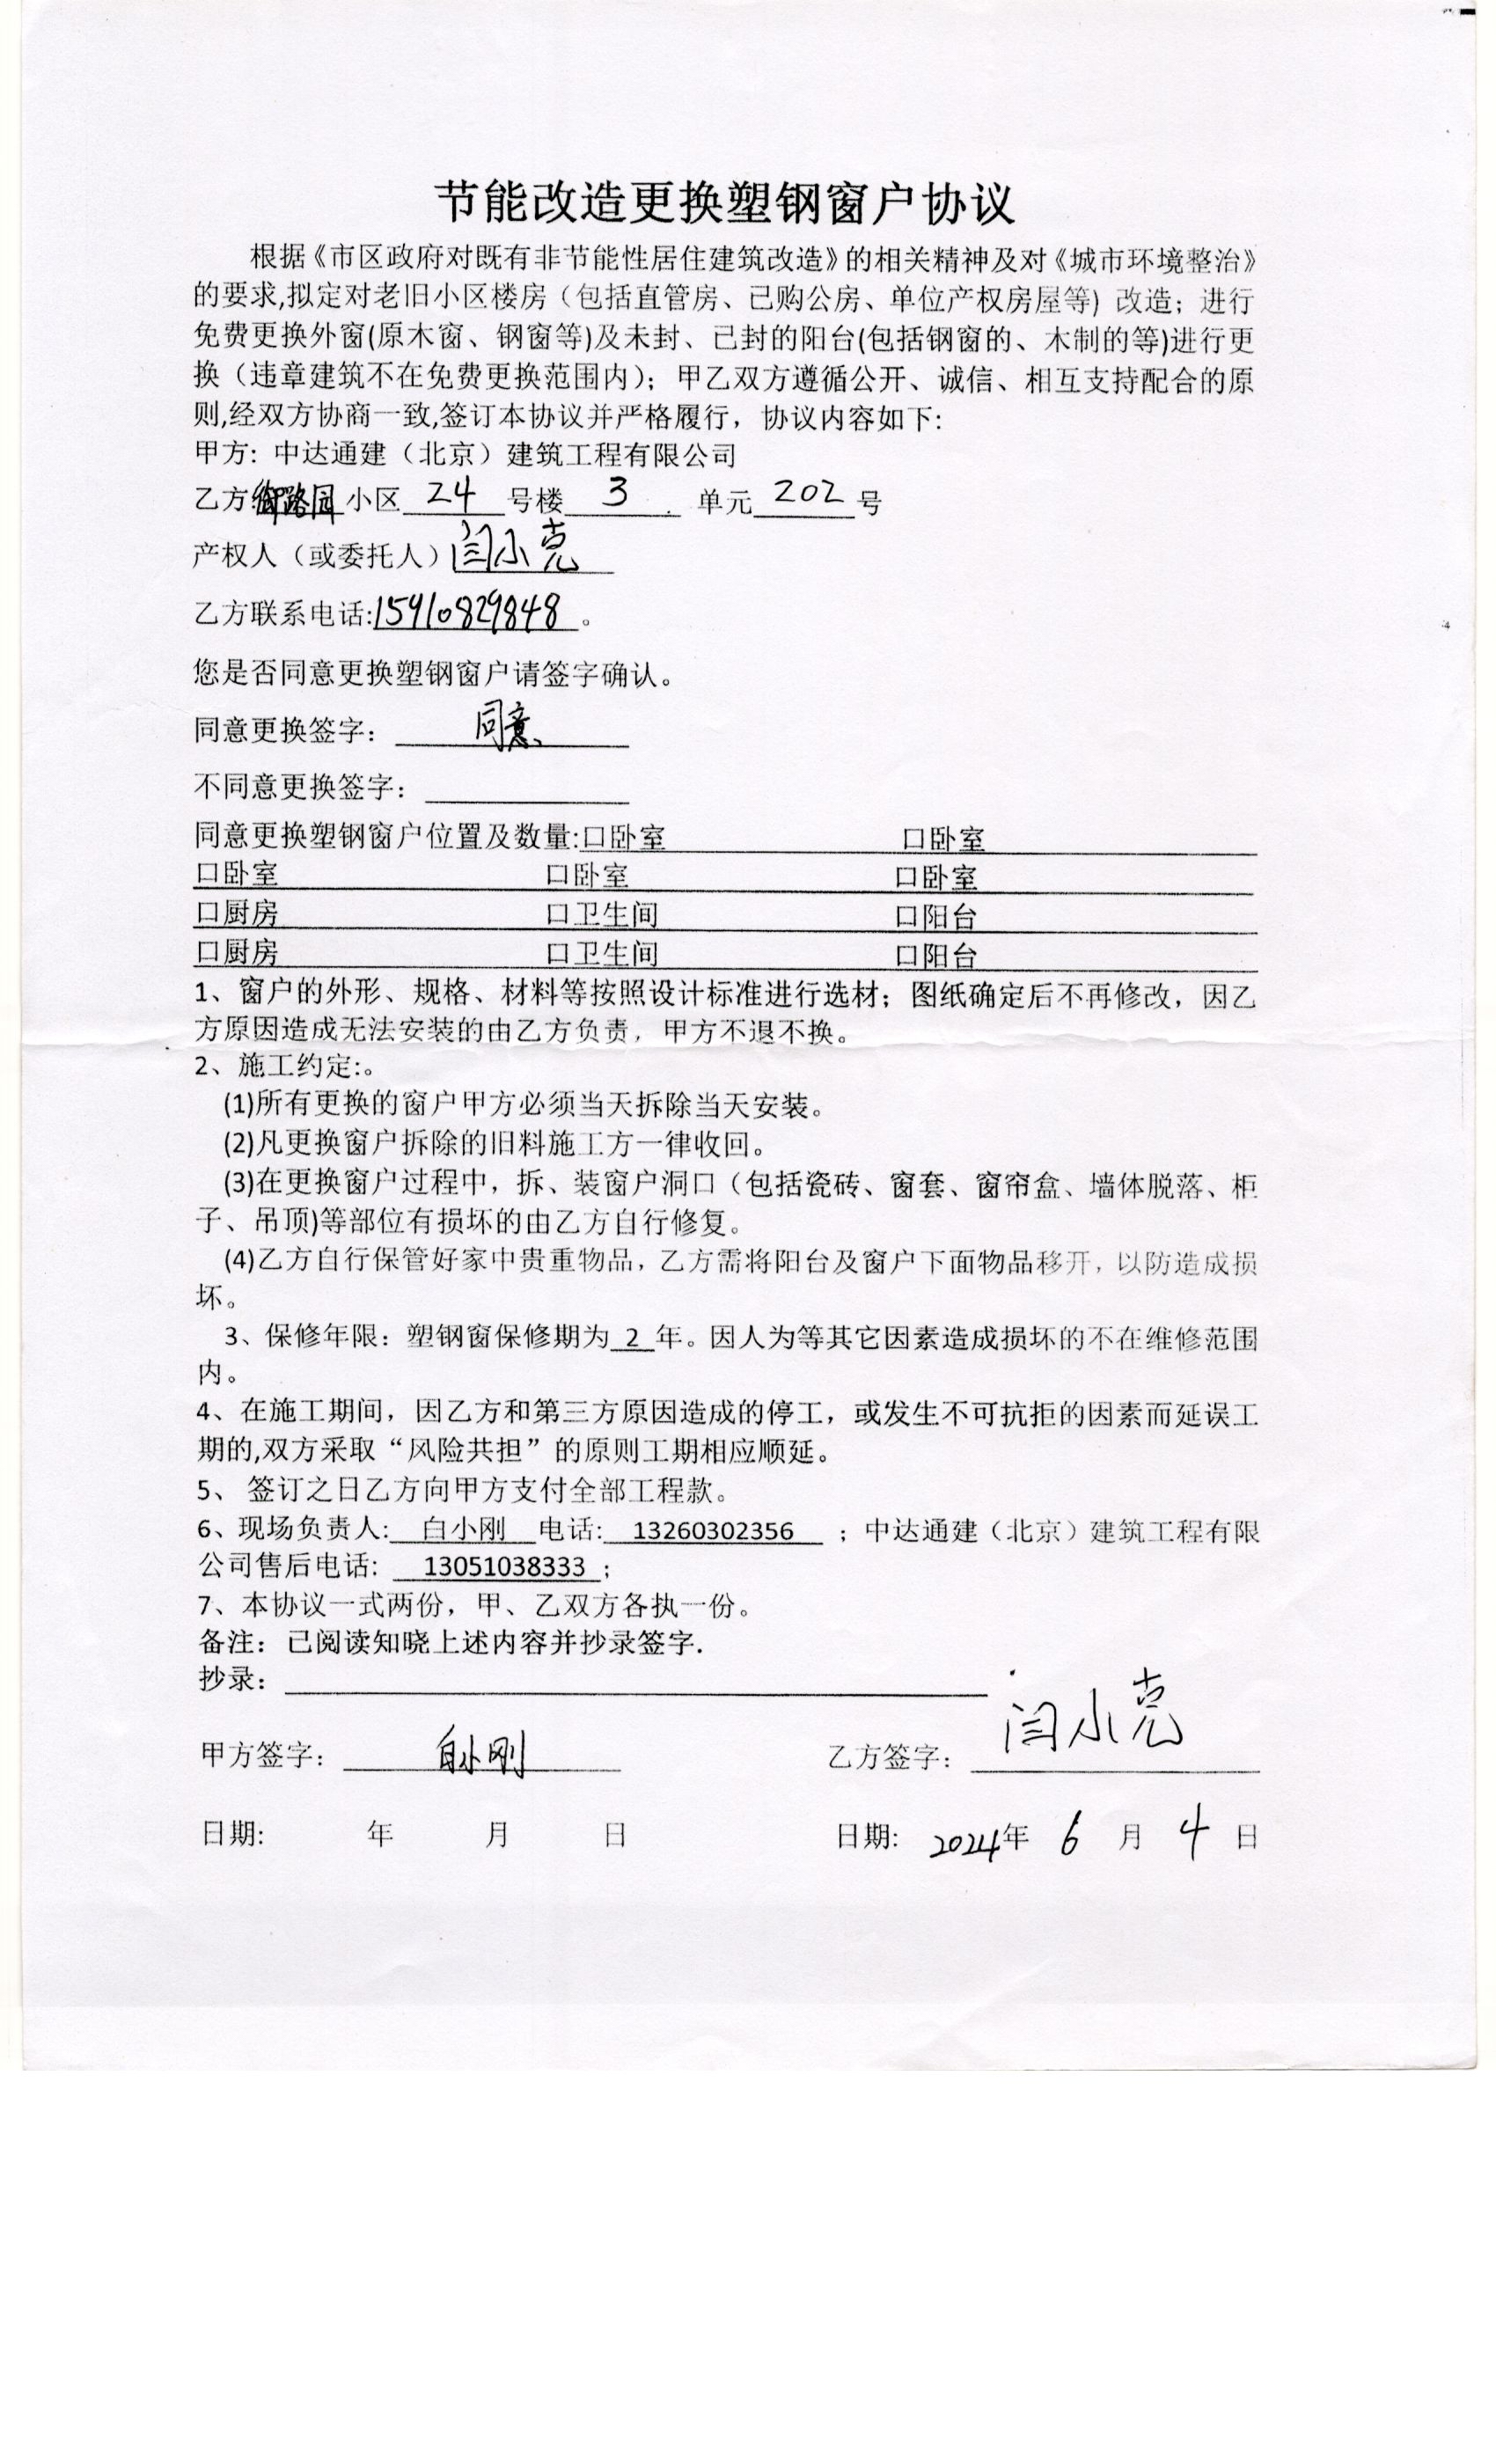 节能改造更换塑钢窗户协议
根据《市区政府对既有非节能性居住建筑改造》的相关精神及对《城市环境整治》
的要求,拟定对老旧小区楼房（包括直管房、已购公房、单位产权房屋等）改造；进行
免费更换外窗(原木窗、钢窗等)及未封、已封的阳台(包括钢窗的、木制的等)进行更
换（违章建筑不在免费更换范围内）；甲乙双方遵循公开、诚信、相互支持配合的原
则,经双方协商一致,签订本协议并严格履行，协议内容如下:
甲方：中达通建（北京）建筑工程有限公司
乙方:御路园小区 24 号楼 3 单元 202 号
产权人（或委托人）闫小克
乙方联系电话:15910829848。
您是否同意更换塑钢窗户请签字确认。
同意更换签字： 同意
不同意更换签字：
同意更换塑钢窗户位置及数量:口卧室 口卧室
口卧室 口卧室 口卧室
口厨房 口卫生间 口阳台
口厨房 口卫生间 口阳台
1、窗户的外形、规格、材料等按照设计标准进行选材；图纸确定后不再修改，因乙
方原因造成无法安装的由乙方负责，甲方不退不换。
2、施工约定:。
(1)所有更换的窗户甲方必须当天拆除当天安装。
(2)凡更换窗户拆除的旧料施工方一律收回。
(3)在更换窗户过程中，拆、装窗户洞口（包括瓷砖、窗套、窗帘盒、墙体脱落、柜
子、吊顶)等部位有损坏的由乙方自行修复。
(4)乙方自行保管好家中贵重物品，乙方需将阳台及窗户下面物品移开，以防造成损
坏。
3、保修年限：塑钢窗保修期为 2 年。因人为等其它因素造成损坏的不在维修范围
内。
4、在施工期间，因乙方和第三方原因造成的停工，或发生不可抗拒的因素而延误工
期的,双方采取“风险共担”的原则工期相应顺延。
5、 签订之日乙方向甲方支付全部工程款。
6、现场负责人: 白小刚 电话: 13260302356 ；中达通建（北京）建筑工程有限
公司售后电话: 13051038333；
7、本协议一式两份，甲、乙双方各执一份。
备注：已阅读知晓上述内容并抄录签字.
抄录：
甲方签字： 白小刚 乙方签字： 闫小克
日期: 年 月 日 日期: 2024年 6 月 4 日